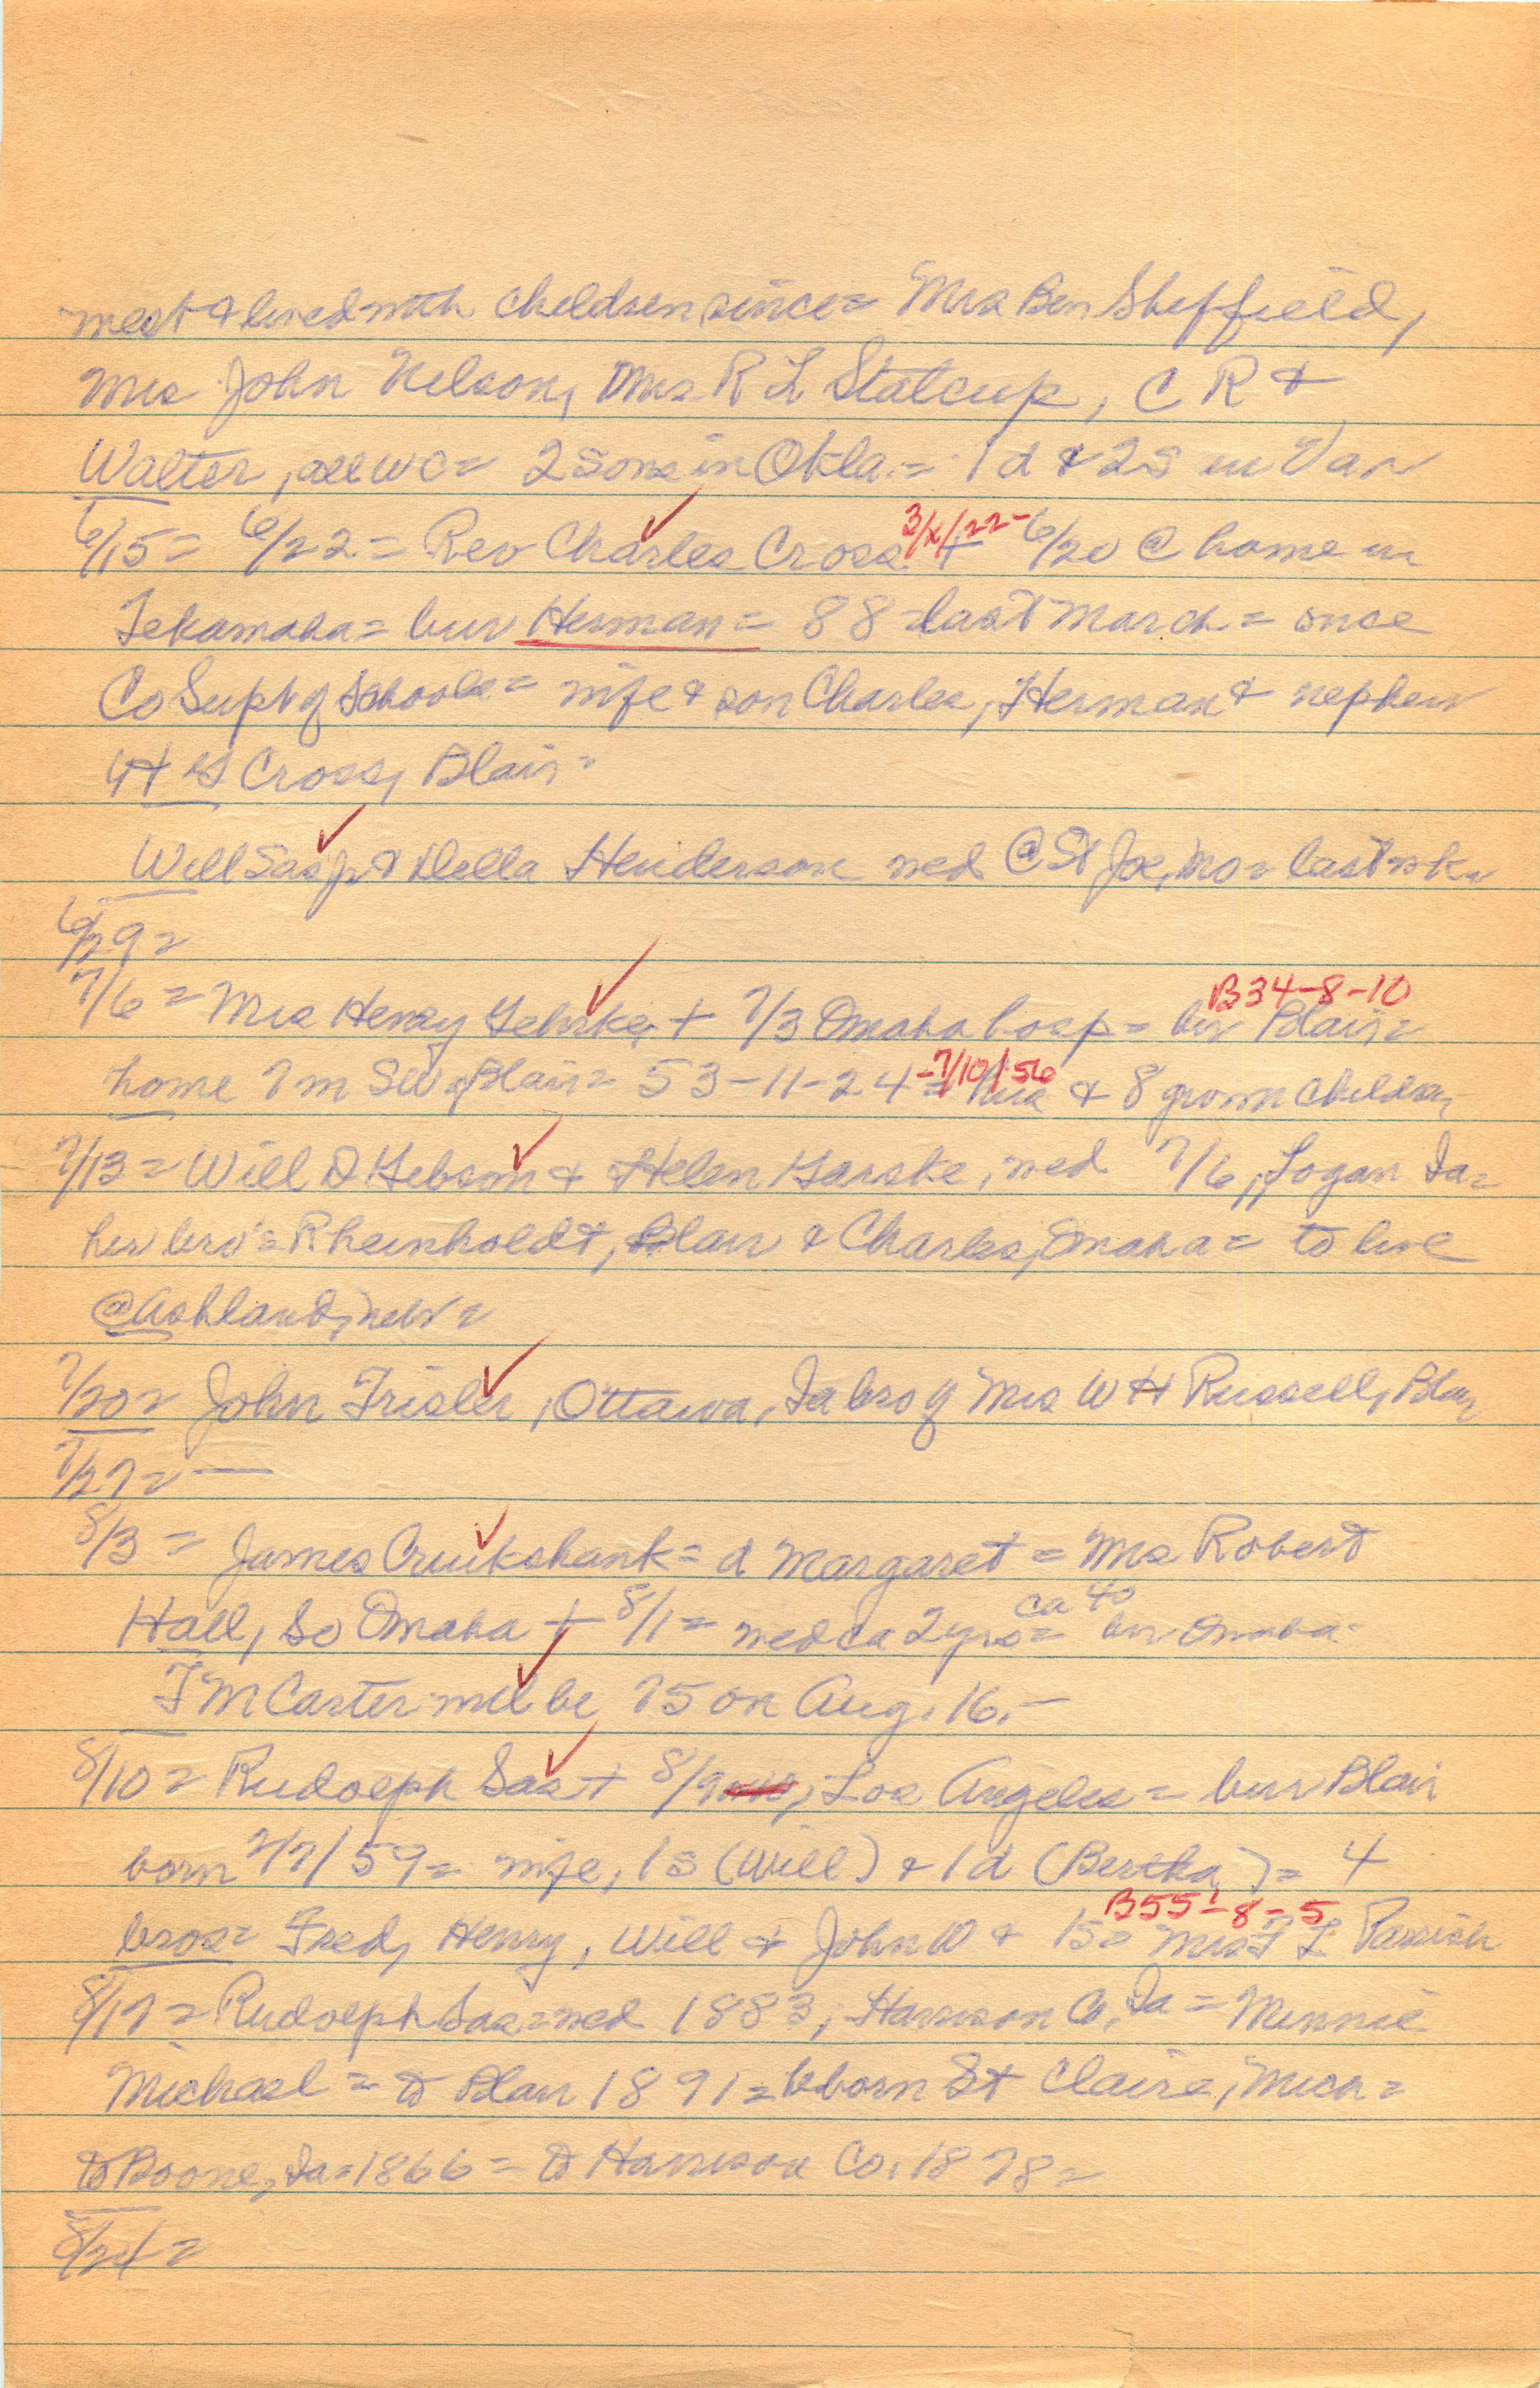 west & lived with children since = Mrs Ben Sheffield,
Mrs John Nelson, Mrs R L Statcup, C R &
Walter, all WC = 2 sons in Okla. = 1 d & 2 s in Var
6/15 = 6/22 = Rev Charles Cross 3/x/22 - + 6/20 @ home in
Tekamaha = bur Herman = 88 last March = once
Co Supt of Schools = wife & son Charles, Herman & nephew
H G Cross, Blair =
Will Sas jr & Della Henderson wed @ St Joe, Mo = last wk
6/29 =
7/6 = Mrs Henry Gehrke + 7/3 Omaha hosp = bur Blair = B34-8-10
home 7 m SW of Blair = 53-11-24 - 7/10/56 = hus & 8 grown children
7/13 = Will D Gibson & Helen Garske, wed 7/6, Logan Ia =
her bro's = Rheinholdt, Blair & Charles, Omaha = to live
@ Ashland, Nebr =
7/20 = John Trisler, Ottawa, Ia bro of Mrs W H Russell, Blair
7/27 = —
8/3 = James Cruikshank = d Margaret = Mrs Robert
Hall, So Omaha + 8/1 = wed ca 2 yrs = ca 40 bur Omaha -
T M Carter will be 75 on Aug. 16. -
8/10 = Rudolph Sas + 8/9, Los Angeles = bur Blair
born 7/7/59 = wife, 1 s (Will) & 1 d (Bertha) = 4
bros = Fred, Henry, Will & John W & 1 s = Mrs F L Parrish B55'-8-5
8/17 = Rudolph Sas = wed 1883, Harrison Co, Ia = Minnie
Michael = to Blair 1891 = born St Claire, Mich =
to Boone, Ia = 1866 = to Harrison Co. 1878 =
8/24 =